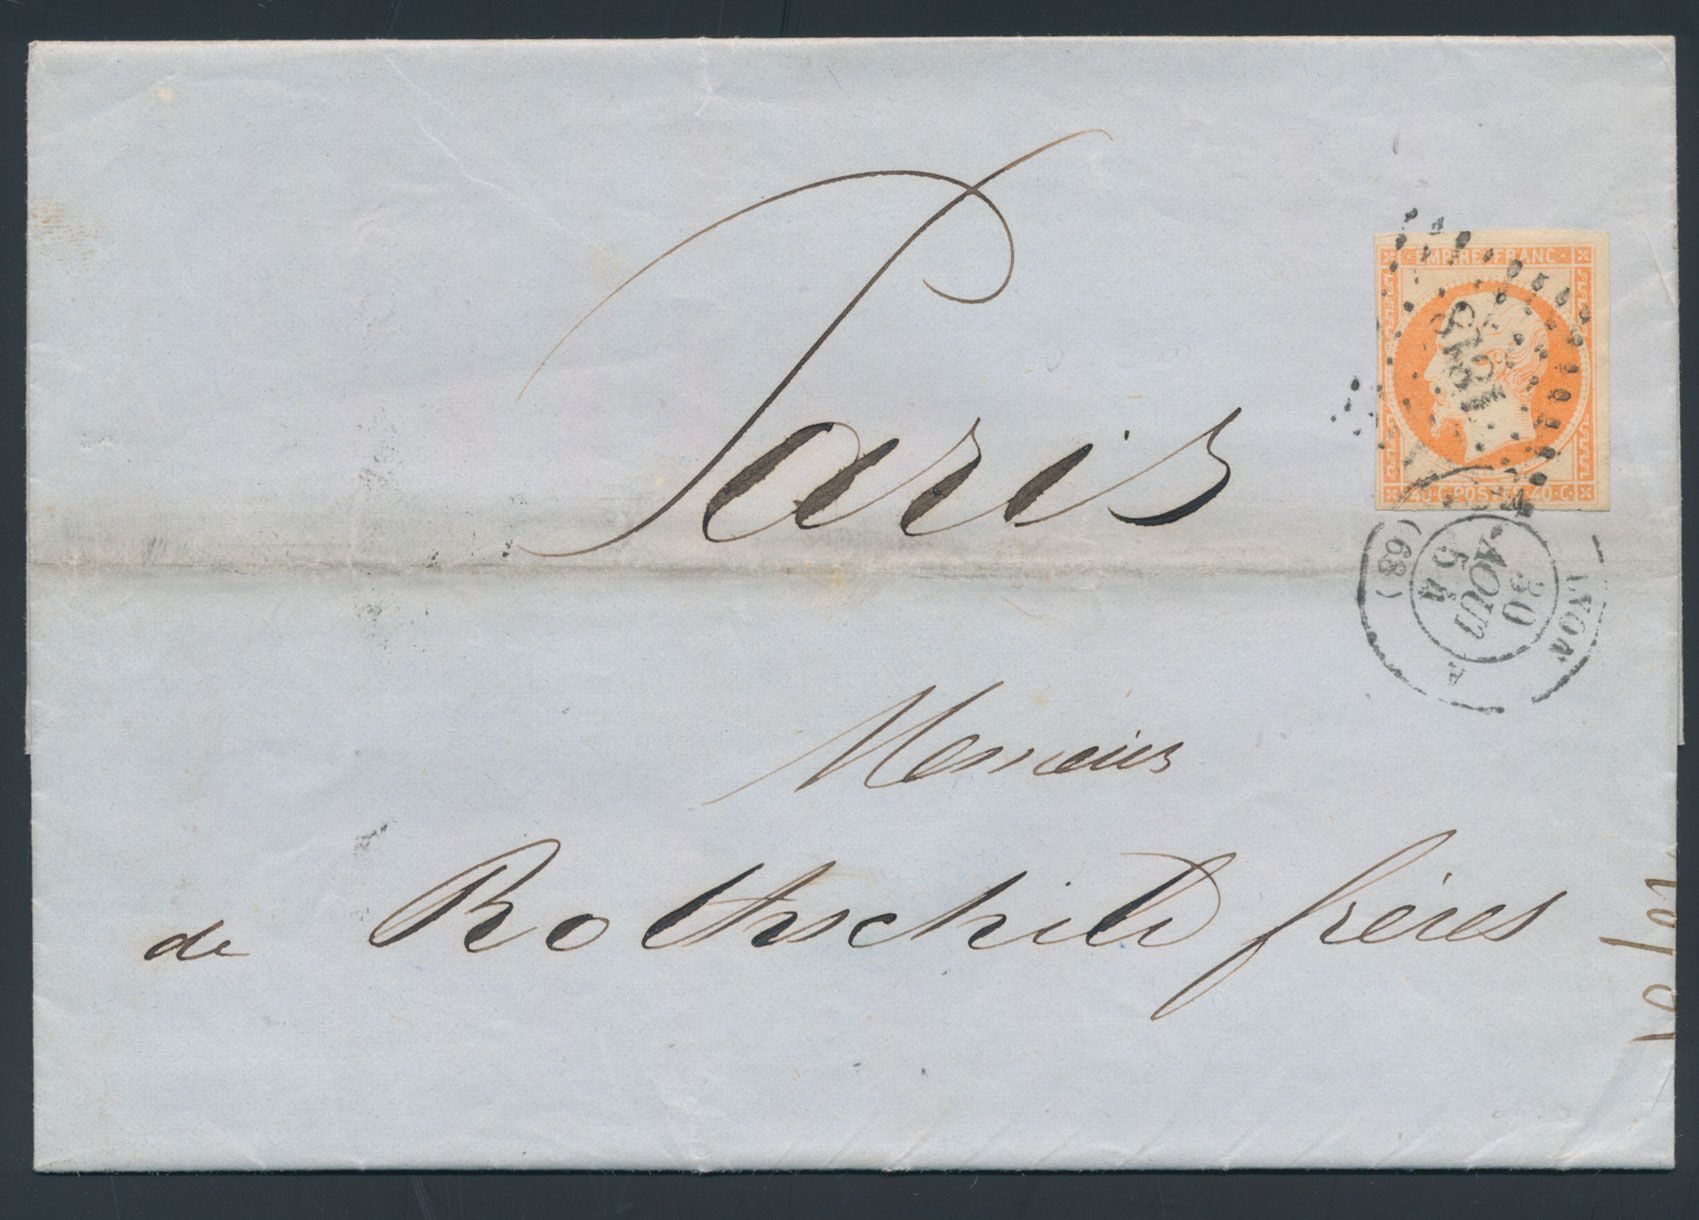 Paris
EMPIRE FRANC
40·C·POSTES·40·C·
LYON
30
AOUT
5
A
(68)
Messieurs
de Rothschild frères